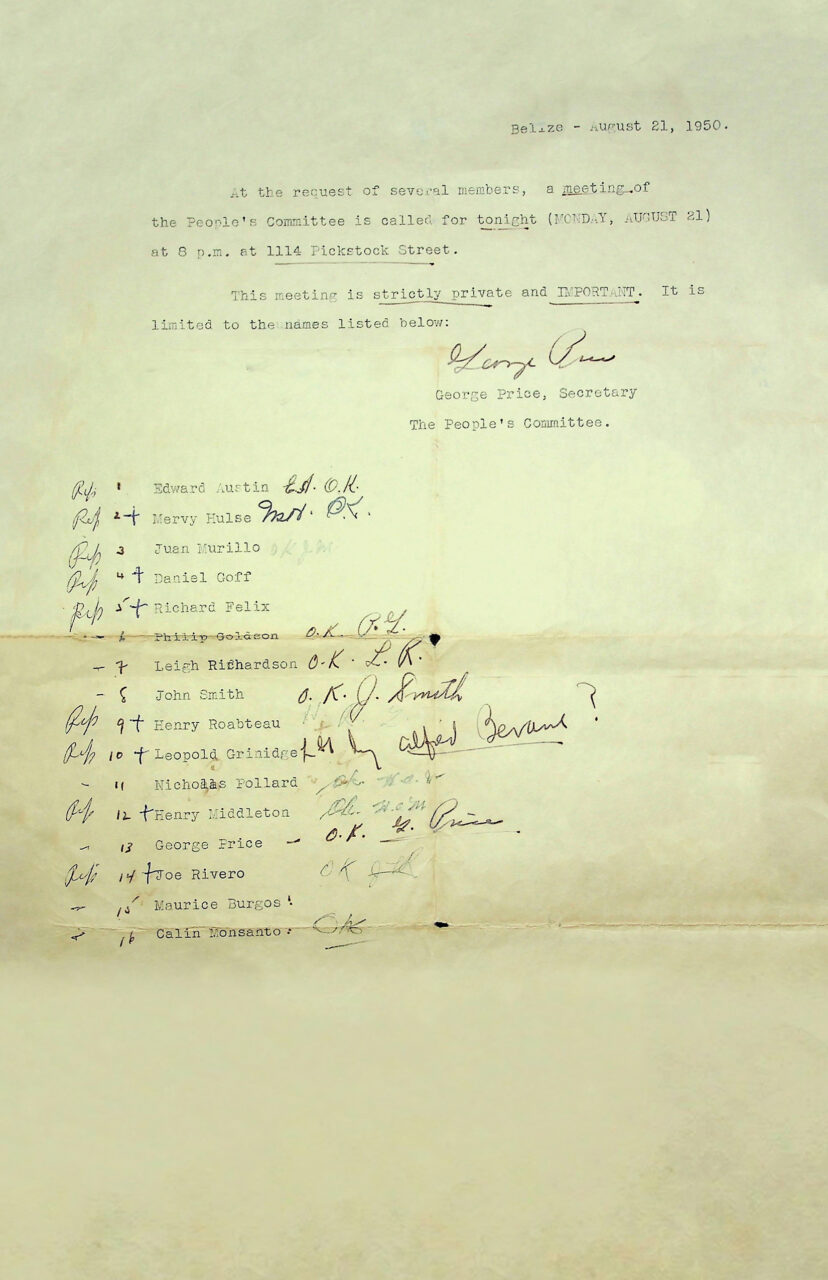 Belize - August 21, 1950.
At the request of several members, a meeting of
the People's Committee is called for tonight (MONDAY, AUGUST 21)
at 8 p.m. at 1114 Pickstock Street.
This meeting is strictly private and IMPORTANT. It is
limited to the names listed below:
George Price
George Price, Secretary
The People's Committee.
Rep 1 Edward Austin E.A. O.K.
Rep 2 + Mervy Hulse M.H. OK.
Rep 3 Juan Murillo OK J.M
Rep 4 + Daniel Goff
Rep 5 + Richard Felix
- 6 Philip Goldson O.K. P.G.
- 7 Leigh Richardson O.K. L.R.
- 8 John Smith O.K. J. Smith
Rep 9 + Henry Roabteau
Rep 10 + Leopold Grinidge by Alfred Bevans ?
- 11 Nicholas Pollard Ok.
Rep 12 + Henry Middleton Ok. H.C.M
- 13 George Price - O.K. G. Price.
Rep 14 + Joe Rivero OK JR
- 15 Maurice Burgos
16 Calin Monsanto: OK